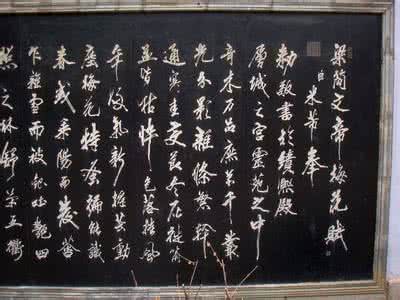 梁簡文帝梅花賦
臣米芾奉
勅敬書於鏡熙殿
層城之宮靈苑之中
奇木万品庶草千叢
光分影雜條繁幹
通寒圭變節冬灰徙筩
並皆枯悴色落摧風
年歸氣新搖芸動
塵梅花特早偏能識
春或承陽而發金
乍雜雪而被銀吐豔四
照之林舒榮五衢